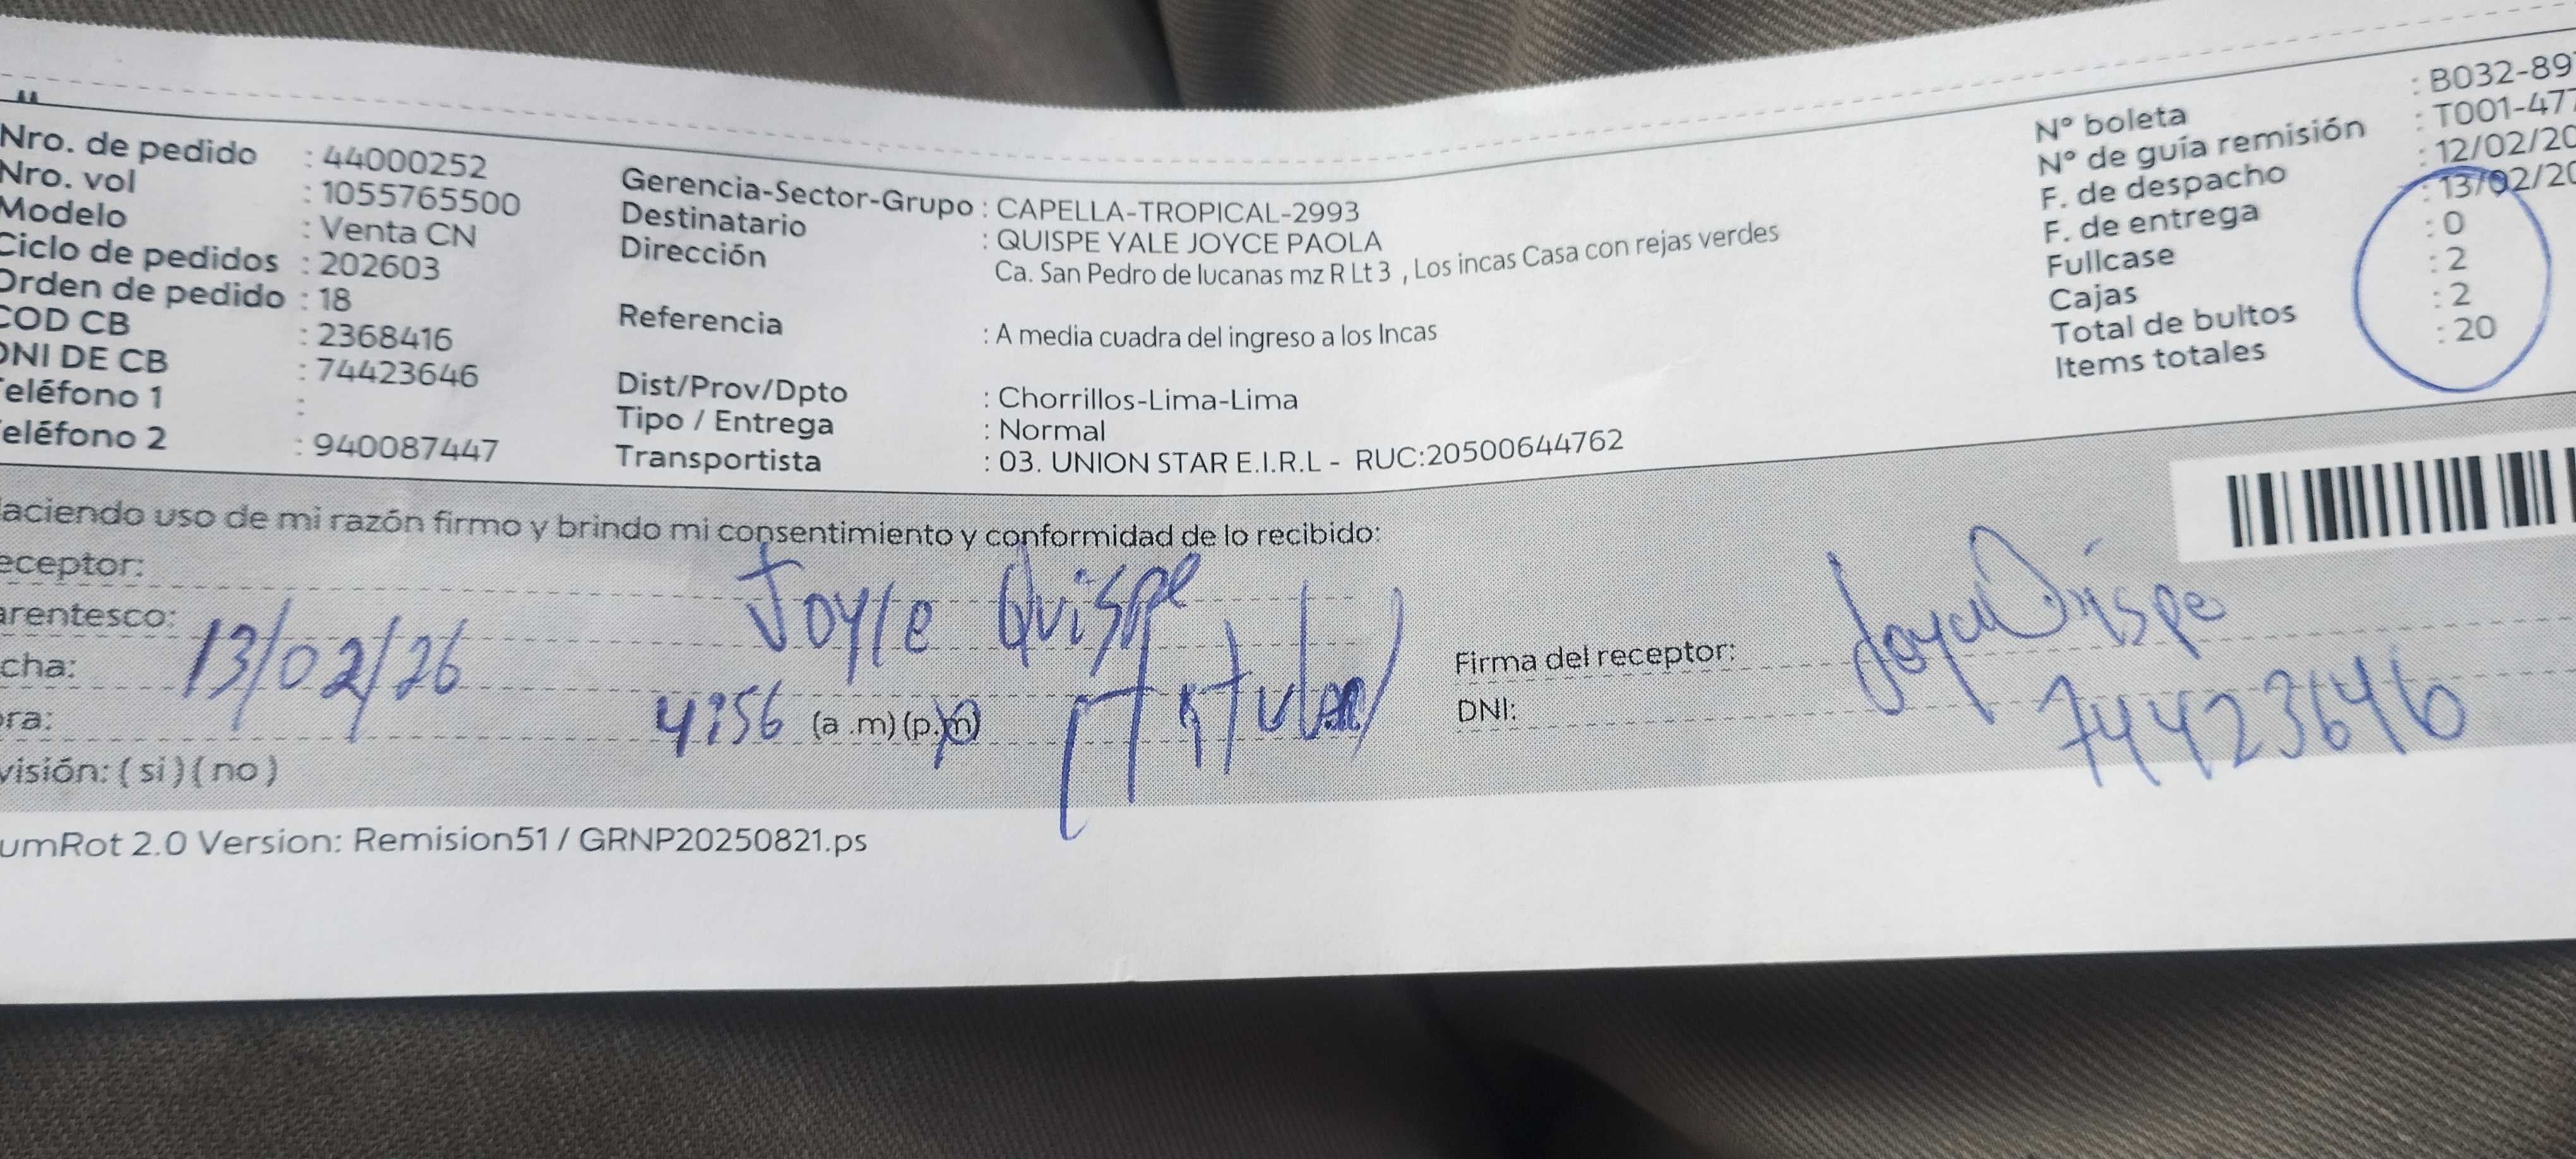 Nro. de pedido : 44000252
Nro. vol : 1055765500
Modelo : Venta CN
Ciclo de pedidos : 202603
Orden de pedido : 18
COD CB : 2368416
DNI DE CB : 74423646
eléfono 1 :
eléfono 2 : 940087447
Gerencia-Sector-Grupo : CAPELLA-TROPICAL-2993
Destinatario : QUISPE YALE JOYCE PAOLA
Dirección Ca. San Pedro de lucanas mz R Lt 3 , Los incas Casa con rejas verdes
Referencia : A media cuadra del ingreso a los Incas
Dist/Prov/Dpto : Chorrillos-Lima-Lima
Tipo / Entrega : Normal
Transportista : 03. UNION STAR E.I.R.L - RUC:20500644762
N° boleta : B032-89
N° de guía remisión : T001-477
F. de despacho : 12/02/20
F. de entrega : 13/02/20
Fullcase : 0
Cajas : 2
Total de bultos : 2
Items totales : 20
aciendo uso de mi razón firmo y brindo mi consentimiento y conformidad de lo recibido:
eceptor: Joyce Quispe
arentesco: (titular)
cha: 13/02/26
ora: 4:56 (a .m) (p.m)
visión: ( si ) ( no )
Firma del receptor: Joyce Quispe
DNI: 74423646
umRot 2.0 Version: Remision51 / GRNP20250821.ps